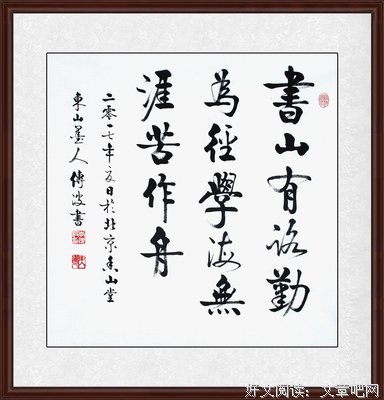 書山有路勤
為徑學海無
涯苦作舟
二零一七年夏日於北京山堂
東山墨人傅波書
好文阅读：文章吧网